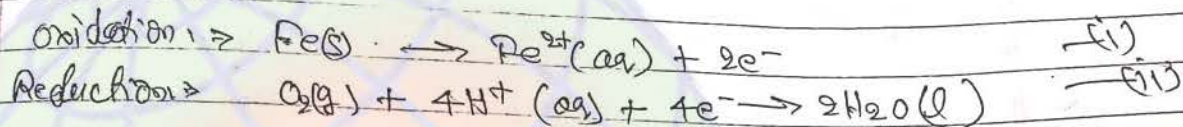 Oxidation :⇒ Fe(s) ⟶ Fe²⁺(aq) + 2e⁻ —(i)
Reduction⇒ O₂(g) + 4H⁺ (aq) + 4e⁻ ⟶ 2H₂O(l) —(ii)